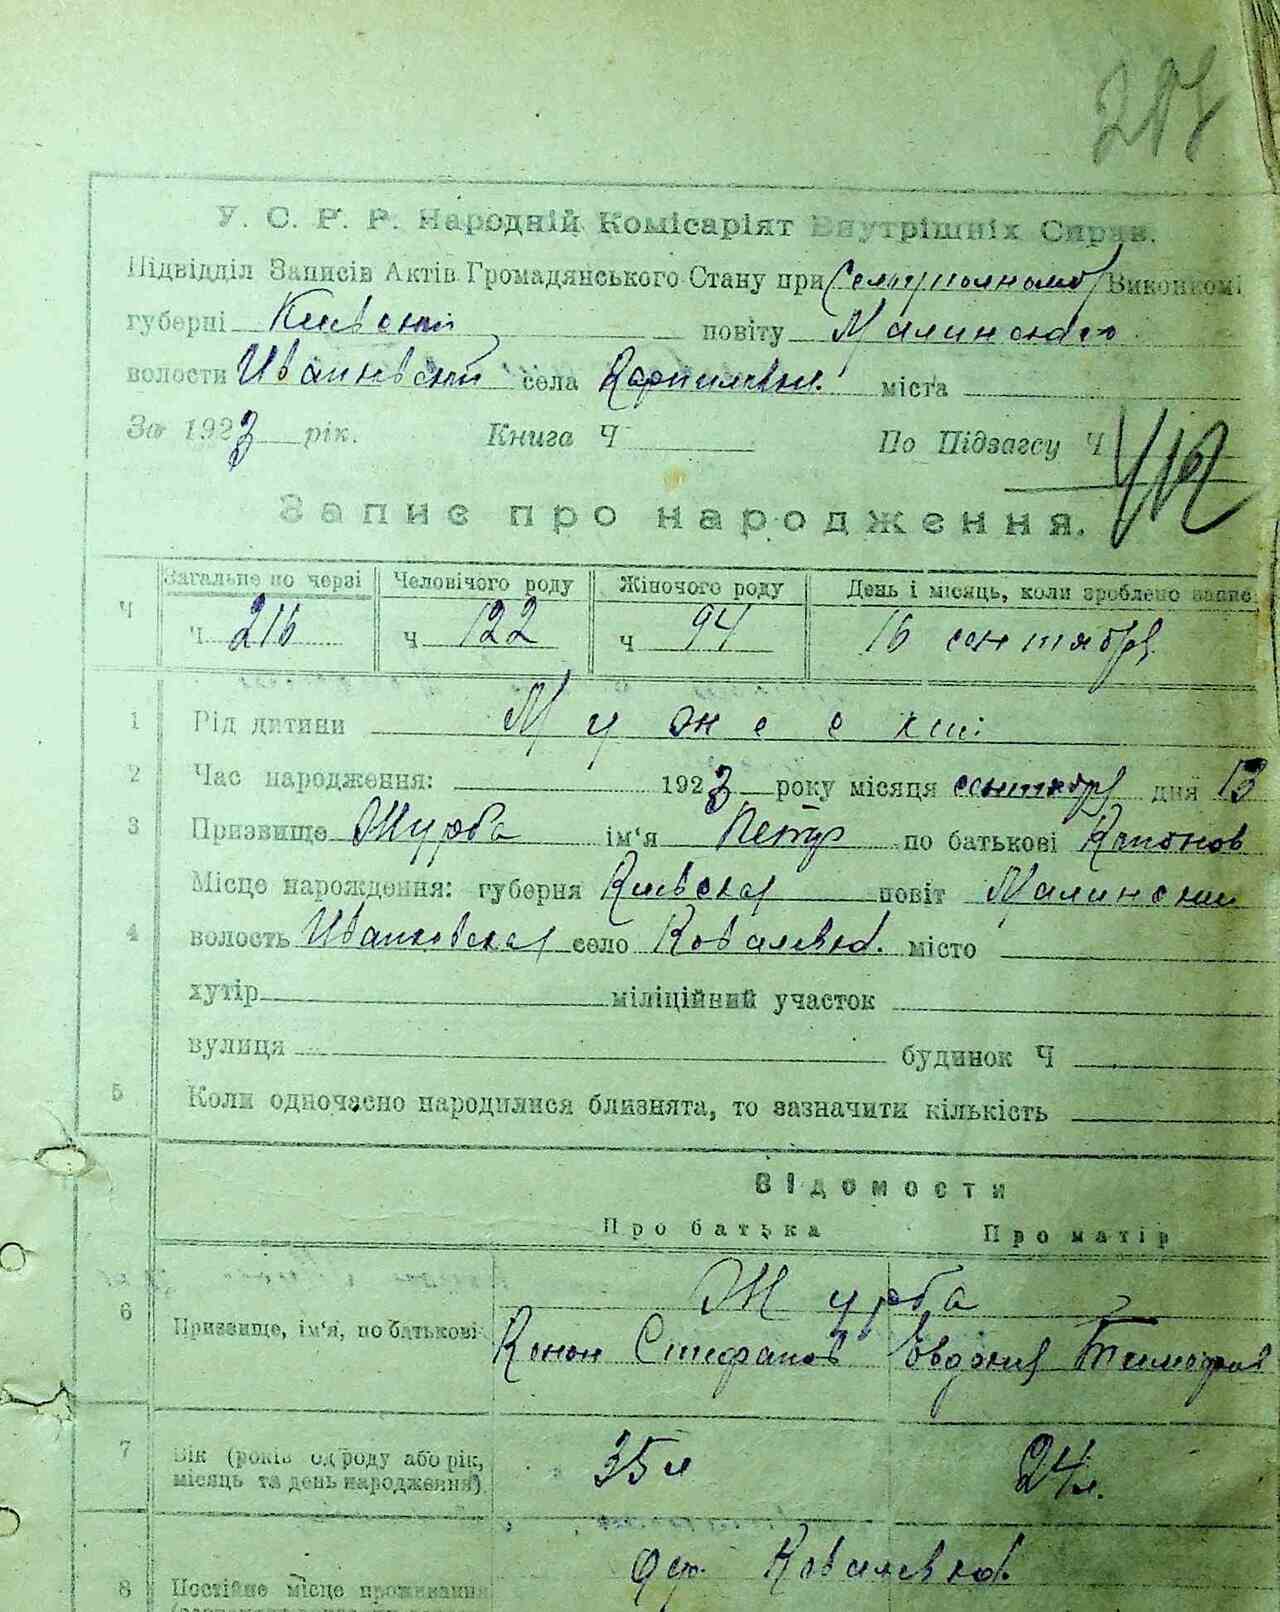 У. С. Р. Р. Народній Комісаріят Внутрішніх Справ.
Підвідділ Записів Актів Громадянського Стану при Виконкомі
губерні Киевской повіту Малинского
волости Иванковской села Карпиловки міста
За 1923 рік. Книга Ч По Підзагсу Ч
Запис про народження.
Загальне по черзі Человічого роду Жіночого роду День і місяць, коли зроблено запис
Ч Ч 216 Ч 122 Ч 94 16 сентября
1 Рід дитини Мужеский
2 Час народження: 1923 року місяця сентября дня 13
3 Призвище Журба ім'я Петр по батькові Кононов
Місце нарождення: губерня Киевская повіт Малинский
4 волость Иванковская село Ковалевка місто
хутір міліційний участок
вулиця будинок Ч
5 Коли одночасно народилися близнята, то зазначити кількість
Відомости
Про батька Про матір
Журба
6 Призвище, ім'я, по батькові Конон Стефанов Евдокия Тимофеев
7 Вік (років од роду або рік, 35 л 24 л.
місяць та день народження)
дер. Ковалевка
8 Постійне місце проживання